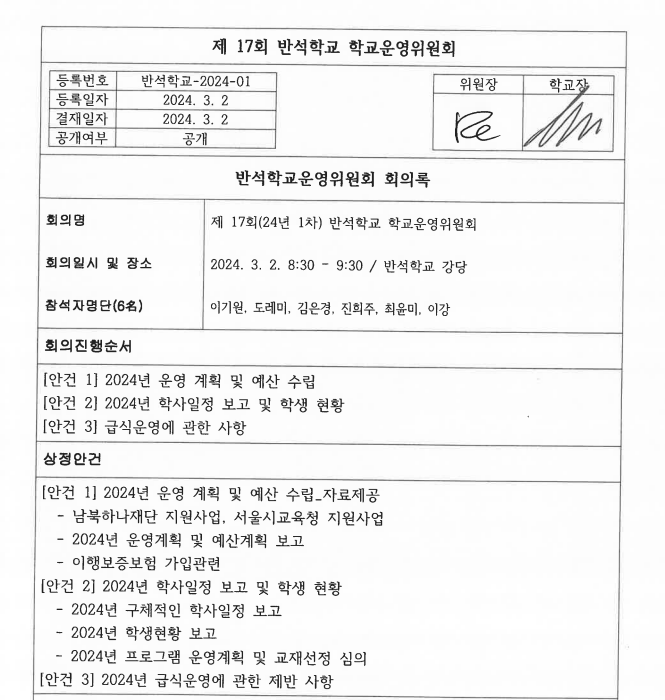 제 17회 반석학교 학교운영위원회
등록번호 반석학교-2024-01
등록일자 2024. 3. 2
결재일자 2024. 3. 2
공개여부 공개
위원장 학교장
반석학교운영위원회 회의록
회의명 제 17회(24년 1차) 반석학교 학교운영위원회
회의일시 및 장소 2024. 3. 2. 8:30 - 9:30 / 반석학교 강당
참석자명단(6名) 이기원, 도레미, 김은경, 진희주, 최윤미, 이강
회의진행순서
[안건 1] 2024년 운영 계획 및 예산 수립
[안건 2] 2024년 학사일정 보고 및 학생 현황
[안건 3] 급식운영에 관한 사항
상정안건
[안건 1] 2024년 운영 계획 및 예산 수립_자료제공
- 남북하나재단 지원사업, 서울시교육청 지원사업
- 2024년 운영계획 및 예산계획 보고
- 이행보증보험 가입관련
[안건 2] 2024년 학사일정 보고 및 학생 현황
- 2024년 구체적인 학사일정 보고
- 2024년 학생현황 보고
- 2024년 프로그램 운영계획 및 교재선정 심의
[안건 3] 2024년 급식운영에 관한 제반 사항